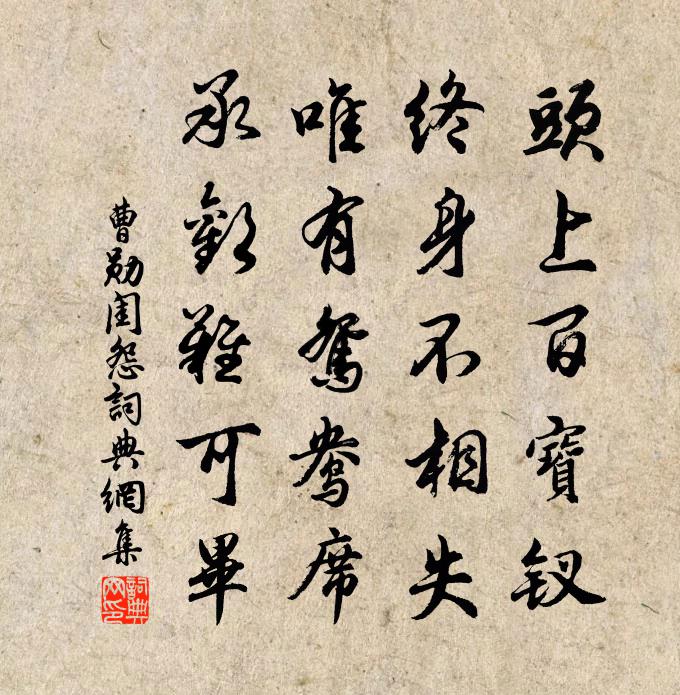 頭上百寶釵
終身不相失
唯有鴛鴦席
承歡難可畢
曹勛閨怨詞典網集
詞典网印